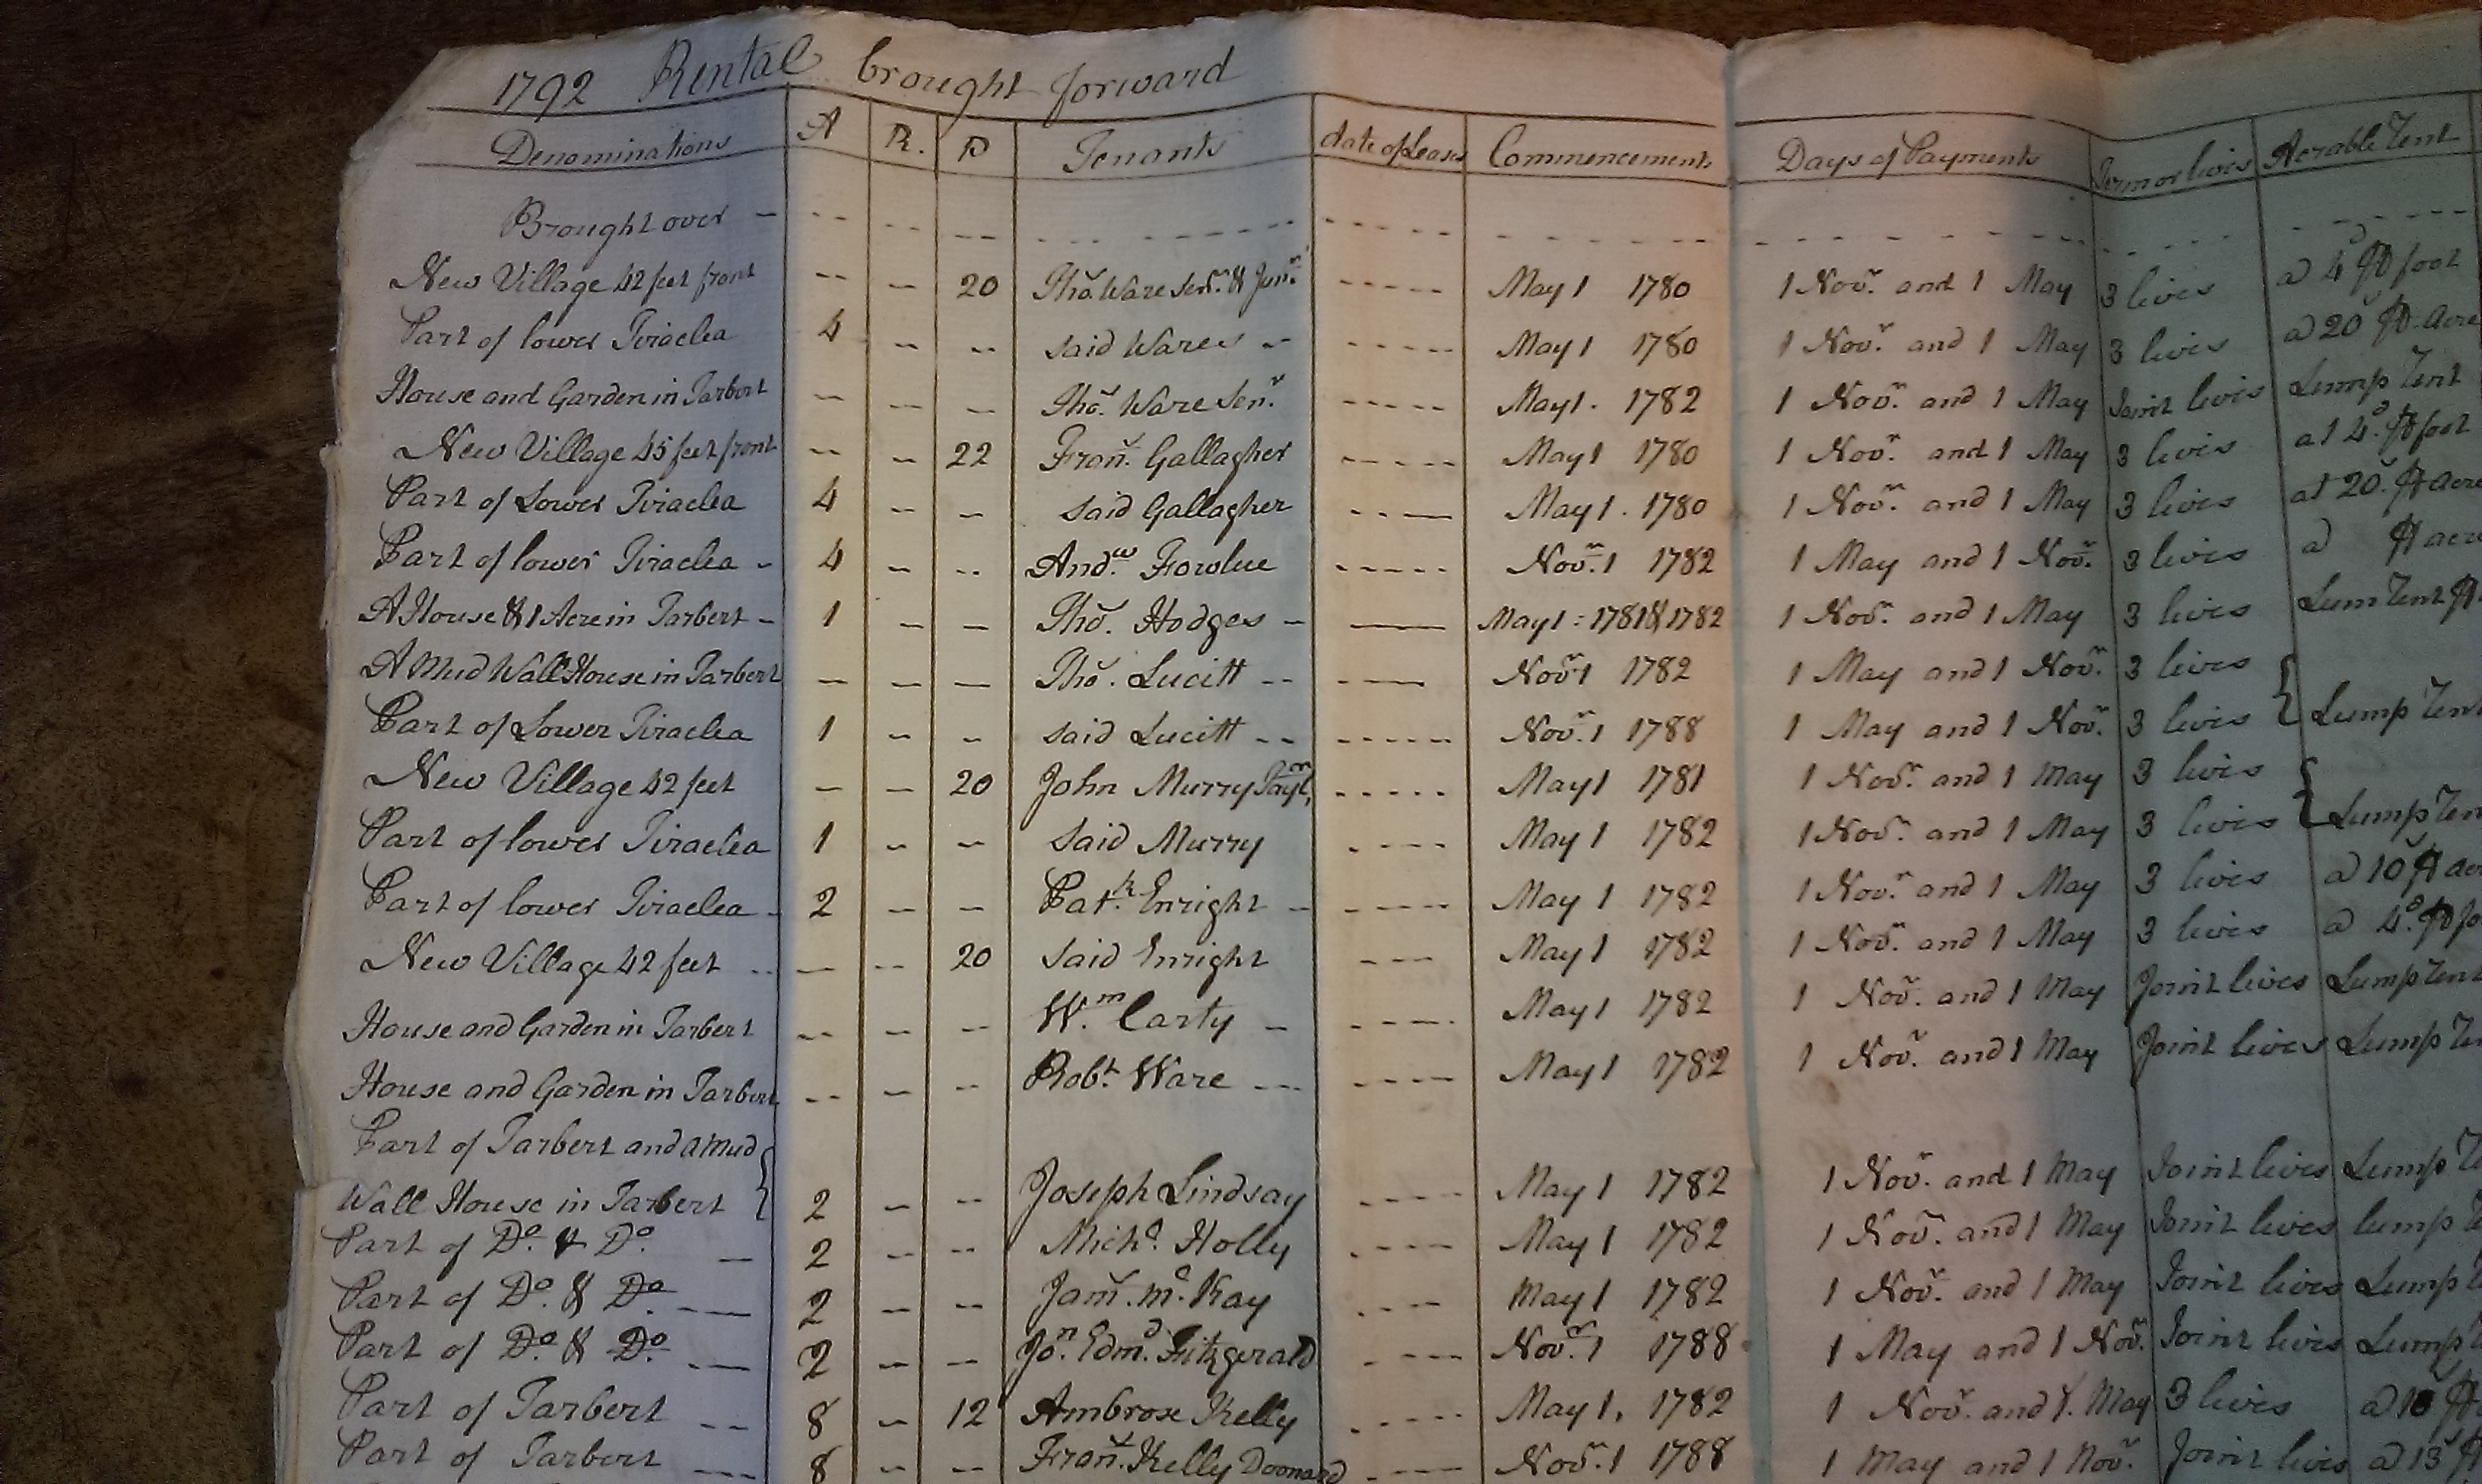 1792 Rental brought forward
Denominations A R. P Tenants date of Leases Commencements Days of Payments Term or lives Acrable Rent
Brought over
New Village 42 feet front 20 Tho.s Ware Sen.r & Jun.r May 1 1780 1 Nov.r and 1 May 3 lives a 4d ℔ foot
Part of lower Tiraclea 4 said Wares May 1 1780 1 Nov.r and 1 May 3 lives a 20s ℔ acre
House and Garden in Tarbert Tho.s Ware Sen.r May 1. 1782 1 Nov.r and 1 May Joint lives Lump Rent
New Village 45 feet front 22 Fran.s Gallagher May 1 1780 1 Nov.r and 1 May 3 lives at 4d. ℔ foot
Part of Lower Tiraclea 4 said Gallagher May 1. 1780 1 Nov.r and 1 May 3 lives at 20s. ℔ acre
Part of lower Tiraclea 4 And.w Fowlue Nov.r 1 1782 1 May and 1 Nov.r 3 lives a ℔ acre
A House & 1 Acre in Tarbert 1 Tho.s Hodges May 1: 1781 & 1782 1 Nov.r and 1 May 3 lives Lum Rent ℔
A Mud Wall House in Tarbert Tho.s Lucitt Nov.r 1 1782 1 May and 1 Nov.r 3 lives
Part of Lower Tiraclea 1 said Lucitt Nov.r 1 1788 1 May and 1 Nov.r 3 lives Lump Rent
New Village 42 feet 20 John Murry Tayl.r May 1 1781 1 Nov.r and 1 May 3 lives
Part of lower Tiraclea 1 said Murry May 1 1782 1 Nov.r and 1 May 3 lives Lump Ren
Part of lower Tiraclea 2 Pat.k Enright May 1 1782 1 Nov.r and 1 May 3 lives a 10s ℔ acr
New Village 42 feet 20 said Enright May 1 1782 1 Nov.r and 1 May 3 lives a 4d. ℔ fo
House and Garden in Tarbert W.m Carty May 1 1782 1 Nov.r and 1 May Joint lives Lump Rent
House and Garden in Tarbert Rob.t Ware May 1 1782 1 Nov.r and 1 May Joint lives Lump Re
Part of Tarbert and a Mud
Wall House in Tarbert 2 Joseph Lindsay May 1 1782 1 Nov.r and 1 May Joint lives Lump R
Part of Do. & Do. 2 Mich.l Holly May 1 1782 1 Nov.r and 1 May Joint lives lump R
Part of Do. & Do. 2 Jam.s Mc. Kay May 1 1782 1 Nov.r and 1 May Joint lives Lump R
Part of Do. & Do. 2 Jo.n Edm.d Fitzgerald Nov.r 1 1788 1 May and 1 Nov.r Joint lives Lump R
Part of Tarbert 8 12 Ambrose Kelly May 1, 1782 1 Nov.r and 1. May 3 lives a ℔
Part of Tarbert 8 Fran.s Kelly Doonard Nov.r 1 1788 1 May and 1 Nov.r Joint lives a 13s ℔